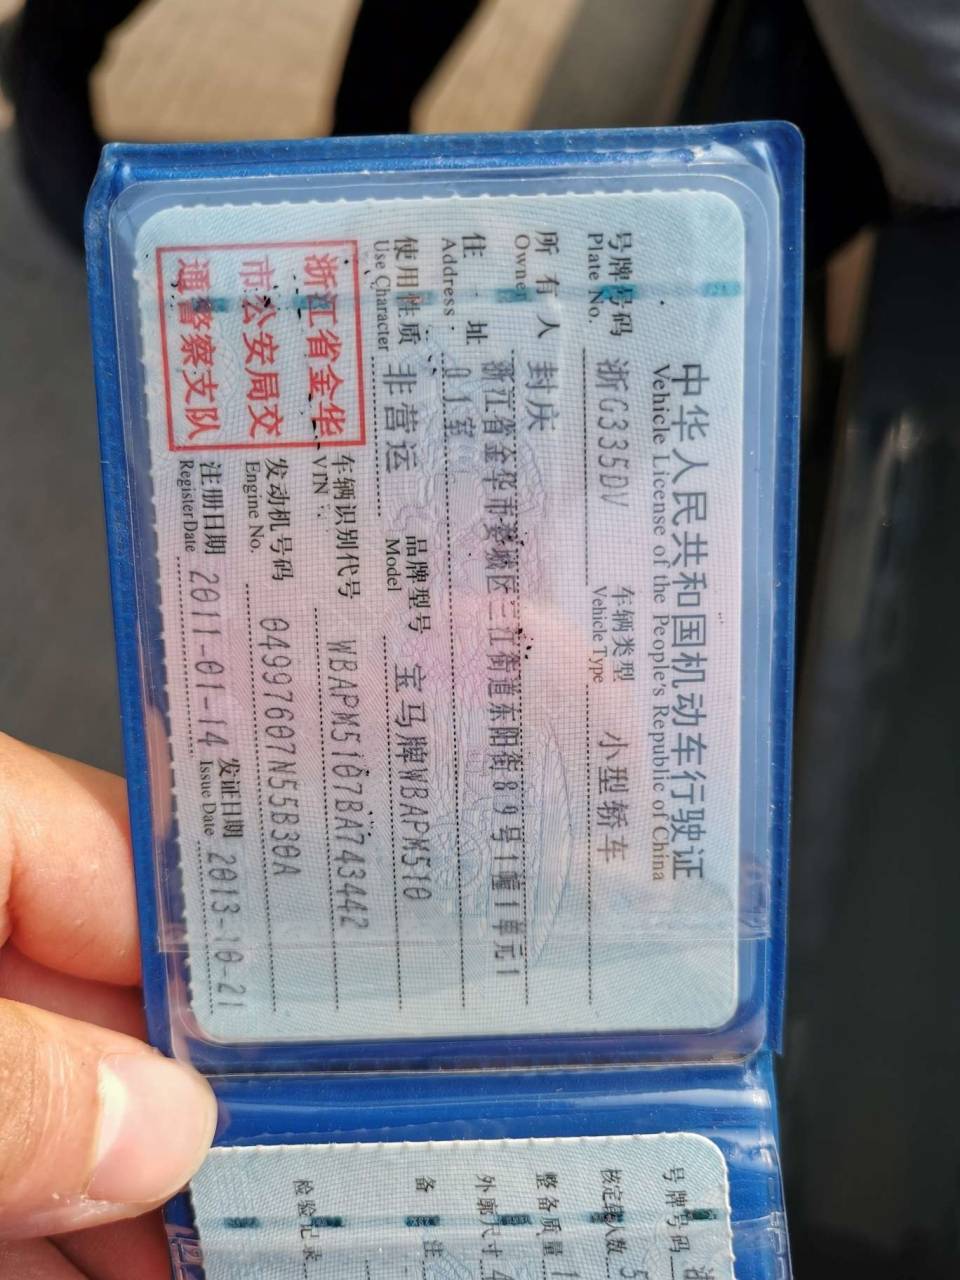 中华人民共和国机动车行驶证
Vehicle License of the People's Republic of China
号牌号码 浙G335DV 车辆类型 小型轿车
Plate No. Vehicle Type
所有人 封庆
Owner
住址 浙江省金华市婺城区三江街道东阳街89号1幢1单元1
Address 01室
使用性质 非营运 品牌型号 宝马牌WBAPM510
Use Character Model
浙江省金华
市公安局交
通警察支队
车辆识别代号 WBAPM5107BA743442
VIN
发动机号码 04997607N55B30A
Engine No.
注册日期 2011-01-14 发证日期 2013-10-21
Register Date Issue Date
号牌号码 浙
核定载人数 5
整备质量 1
外廓尺寸 4
备注
检验记录